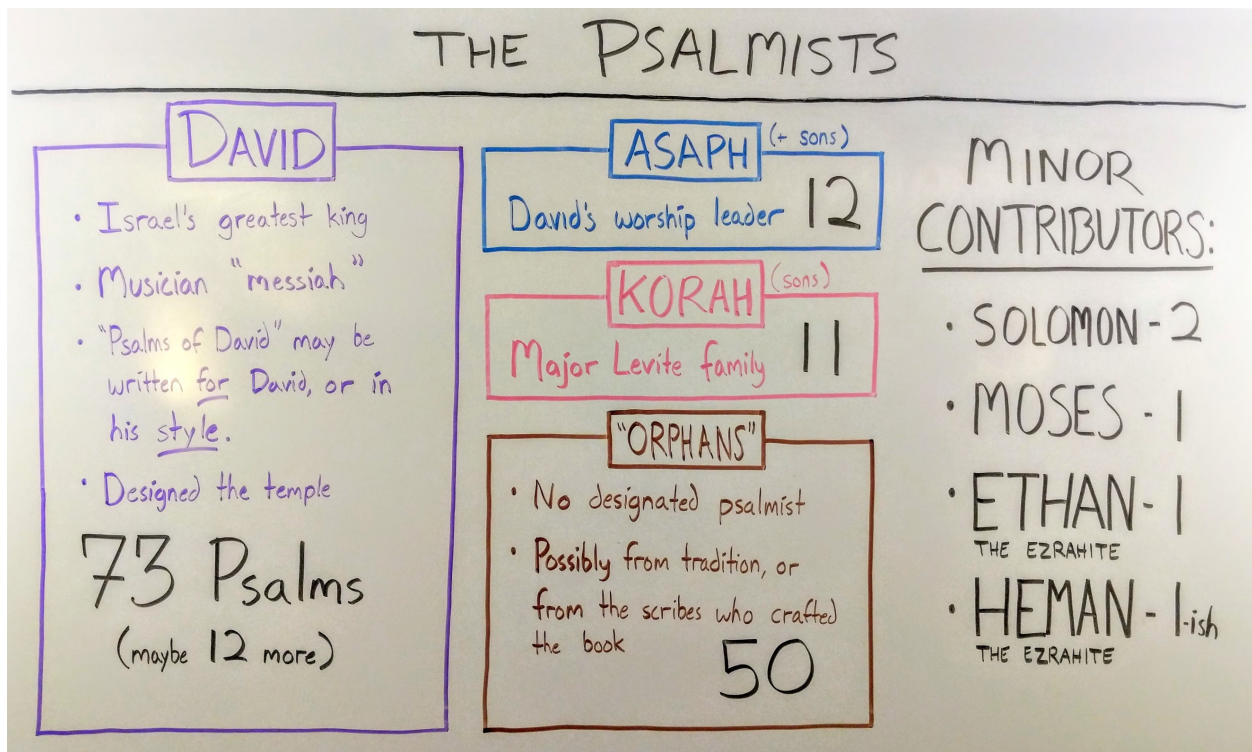 THE PSALMISTS
DAVID
• Israel's greatest king
• Musician "messiah"
• "Psalms of David" may be
written for David, or in
his style.
• Designed the temple
73 Psalms
(maybe 12 more)
ASAPH (+ sons)
David's worship leader 12
KORAH (sons)
Major Levite family 11
"ORPHANS"
• No designated psalmist
• Possibly from tradition, or
from the scribes who crafted
the book
50
MINOR
CONTRIBUTORS:
• SOLOMON - 2
• MOSES - 1
• ETHAN - 1
THE EZRAHITE
• HEMAN - 1-ish
THE EZRAHITE